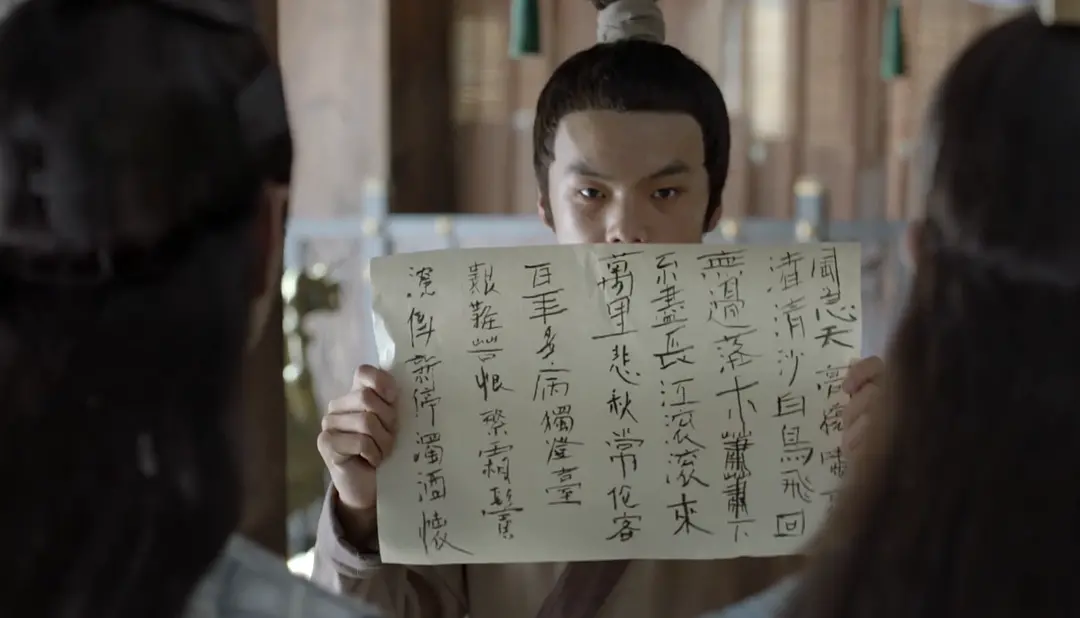 風急天高猿嘯
渚清沙白鳥飛回
無邊落木蕭蕭下
不盡長江滾滾來
萬里悲秋常作客
百年多病獨澄臺
艱難苦恨繁霜鬢
潦倒新停濁酒懷